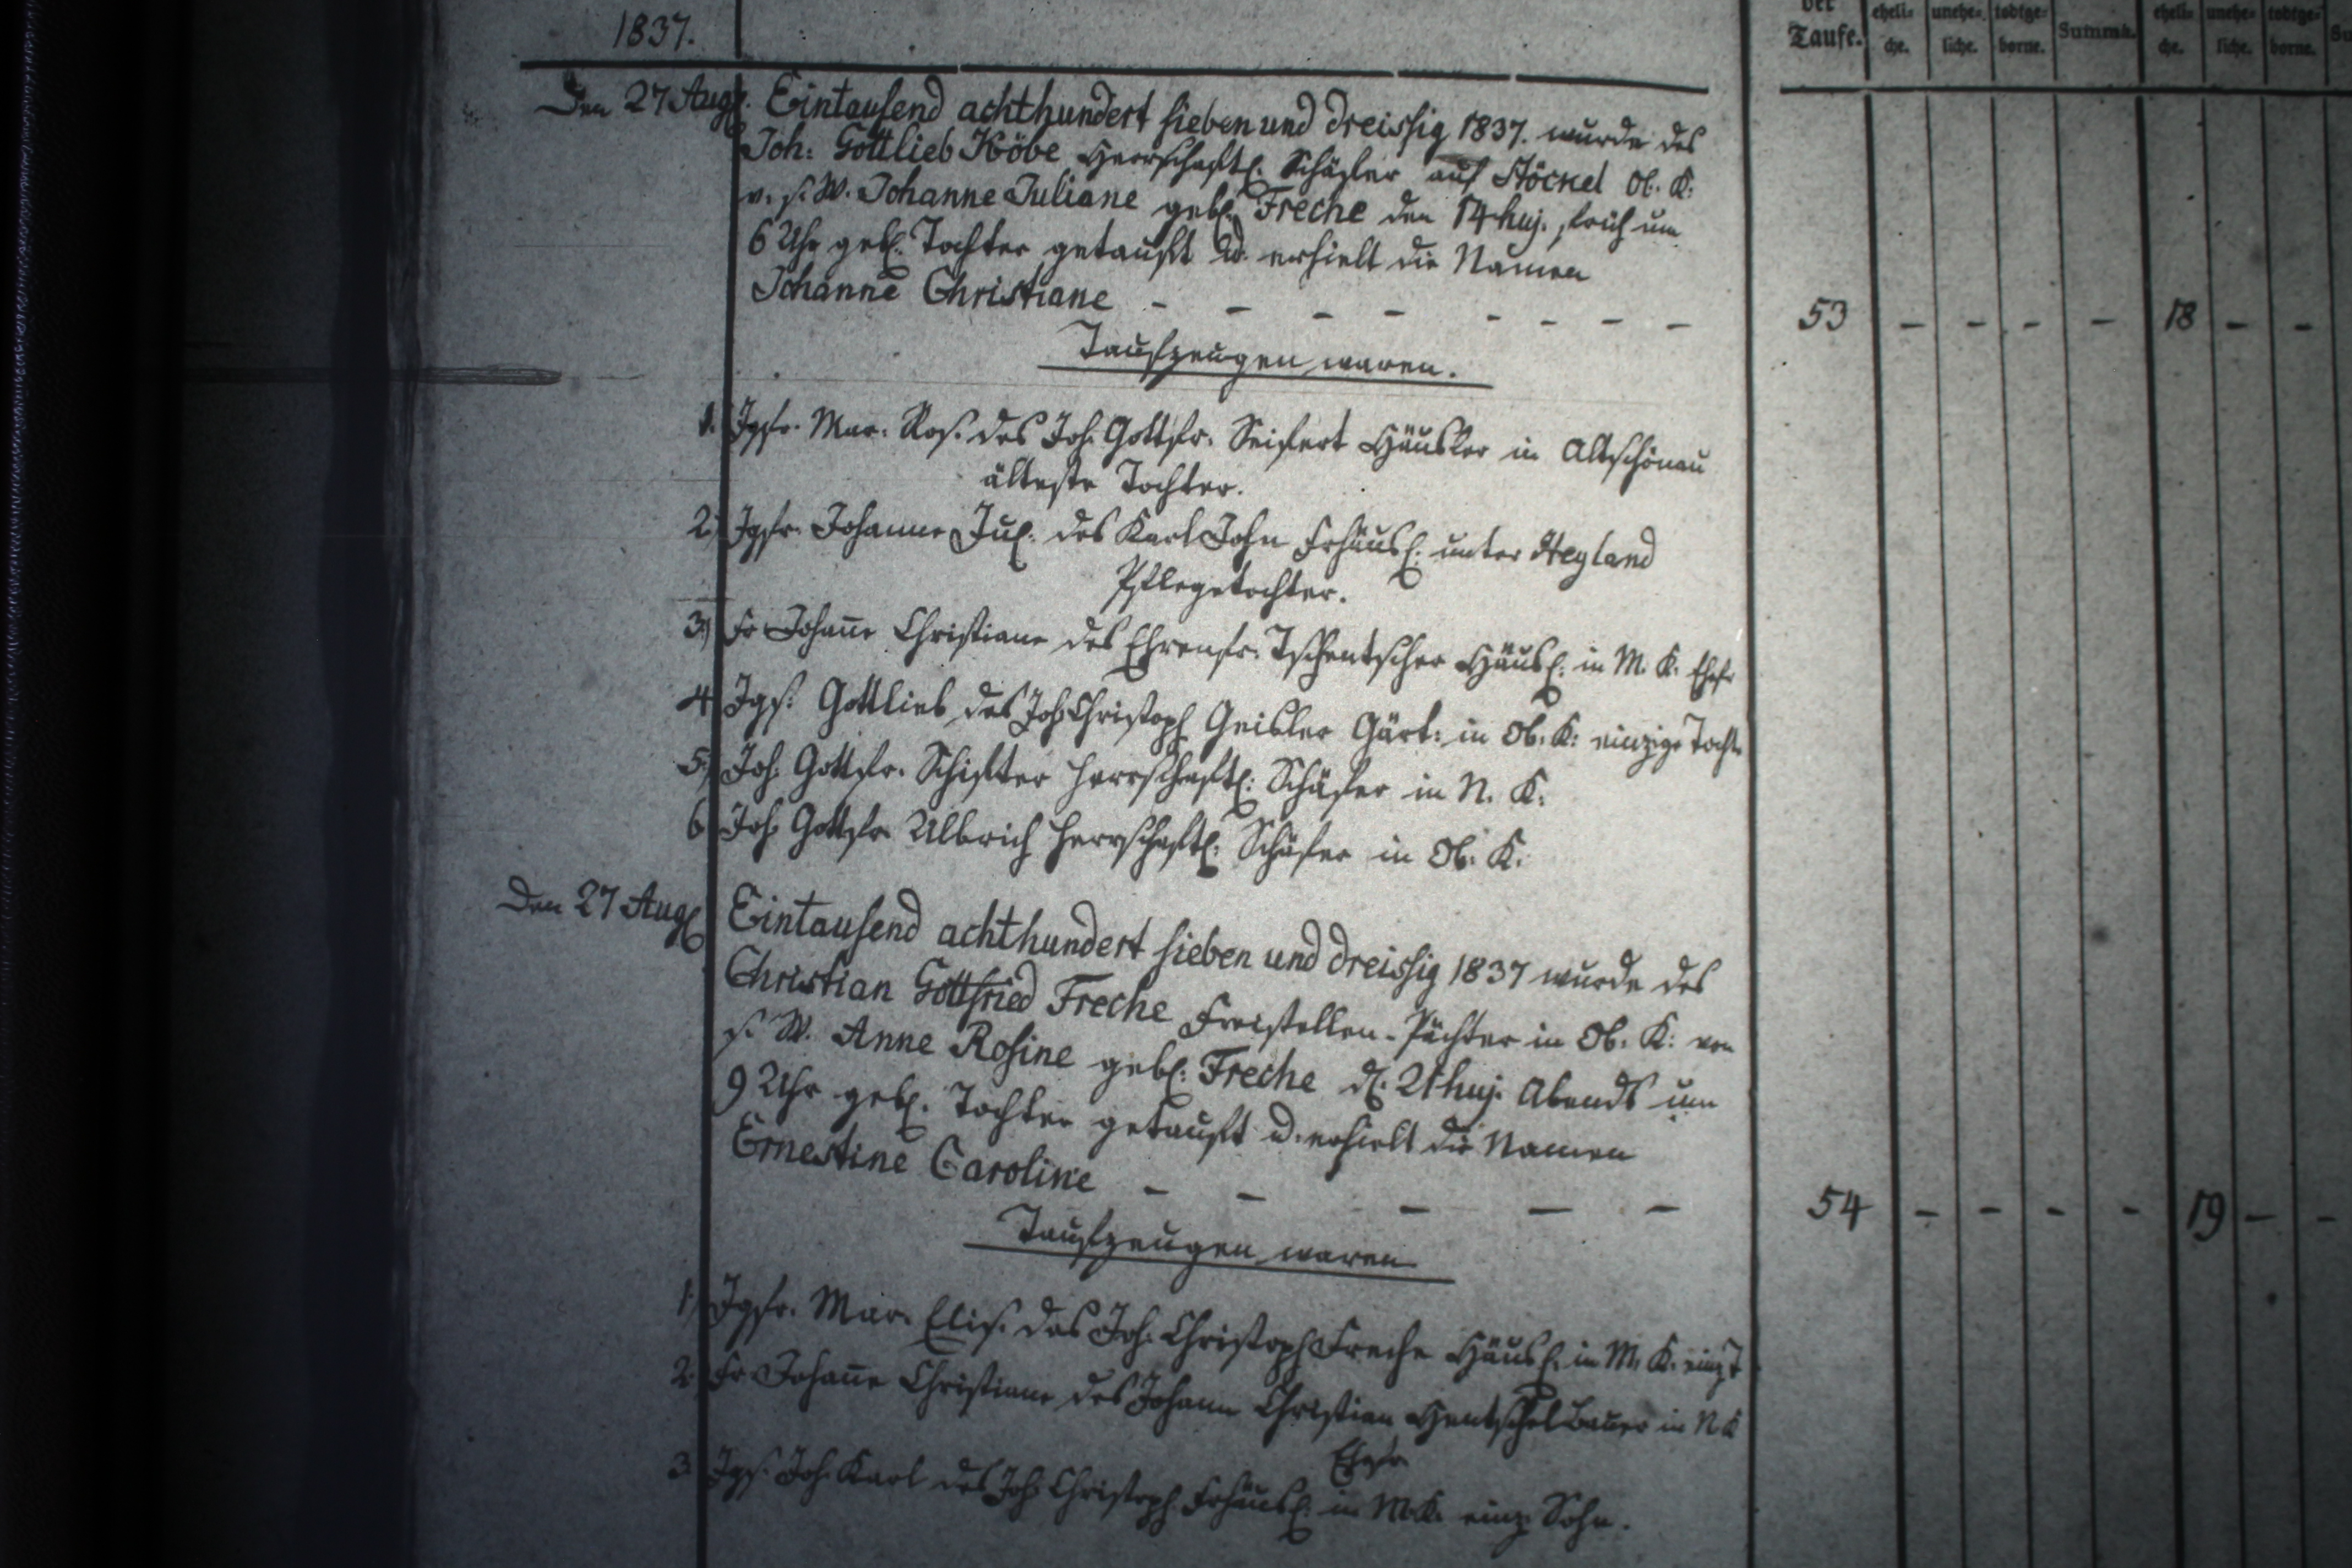 1837.
der Taufe. eheli-che. unehe-liche. todtge-borne. Summa. eheli-che. unehe-liche. todtge-borne. Su
Den 27 Augl. Eintausend achthundert sieben und dreissig 1837. wurde des
Joh: Gottlieb Höbe Herrschaftl: Schäfer auf Stöckel Ob. K:
v. s. W. Johanne Juliane gebl. Freche den 14 huj. früh um
6 Uhr gebl. Tochter getauft u. erhielt die Namen
Johanne Christiane - - - - - - - - 53 - - - - 18 - -
Taufzeugen waren.
1. Jgfr. Mar. Ros. des Joh. Gottfr. Seifert Häusler in Altschönau
älteste Tochter.
2.) Jgfr. Johanne Jul. des Karl John Frhäusl: unter Heyland
Pflegetochter.
3.) Fr Johañe Christiane des Ehrenfr. Tschentscher Häusl: in M. K. Ehefr
4 Jgs. Gottlieb des Joh Christoph Geisler Gärt: in Ob. K: einzige Tocht
5.) Joh. Gottfr. Schifter herrschaftl: Schäfer in N. K.
6 Joh Gottfr Ulbrich herrschaftl: Schäfer in Ob. K.
Den 27 Augl Eintausend achthundert sieben und dreissig 1837 wurde des
Christian Gottfried Freche Freistellen-Pächter in Ob. K: von
s. W. Anne Rosine gebl: Freche d. 21 huj. Abends um
9 Uhr gebl. Tochter getauft u. erhielt die Namen
Ernestine Caroline - - - - - 54 - - - - 19 - -
Taufzeugen waren
1.) Jgfr. Mar. Elis. des Joh. Christoph Freche Häusl. in M. K. einz T
2. Fr Johañe Christiane des Johann Christian Hentschel Bauer in N K
Ehefr
3 Jgs. Joh. Karl des Joh Christoph Frhäusl: in M. K. einz. Sohn.